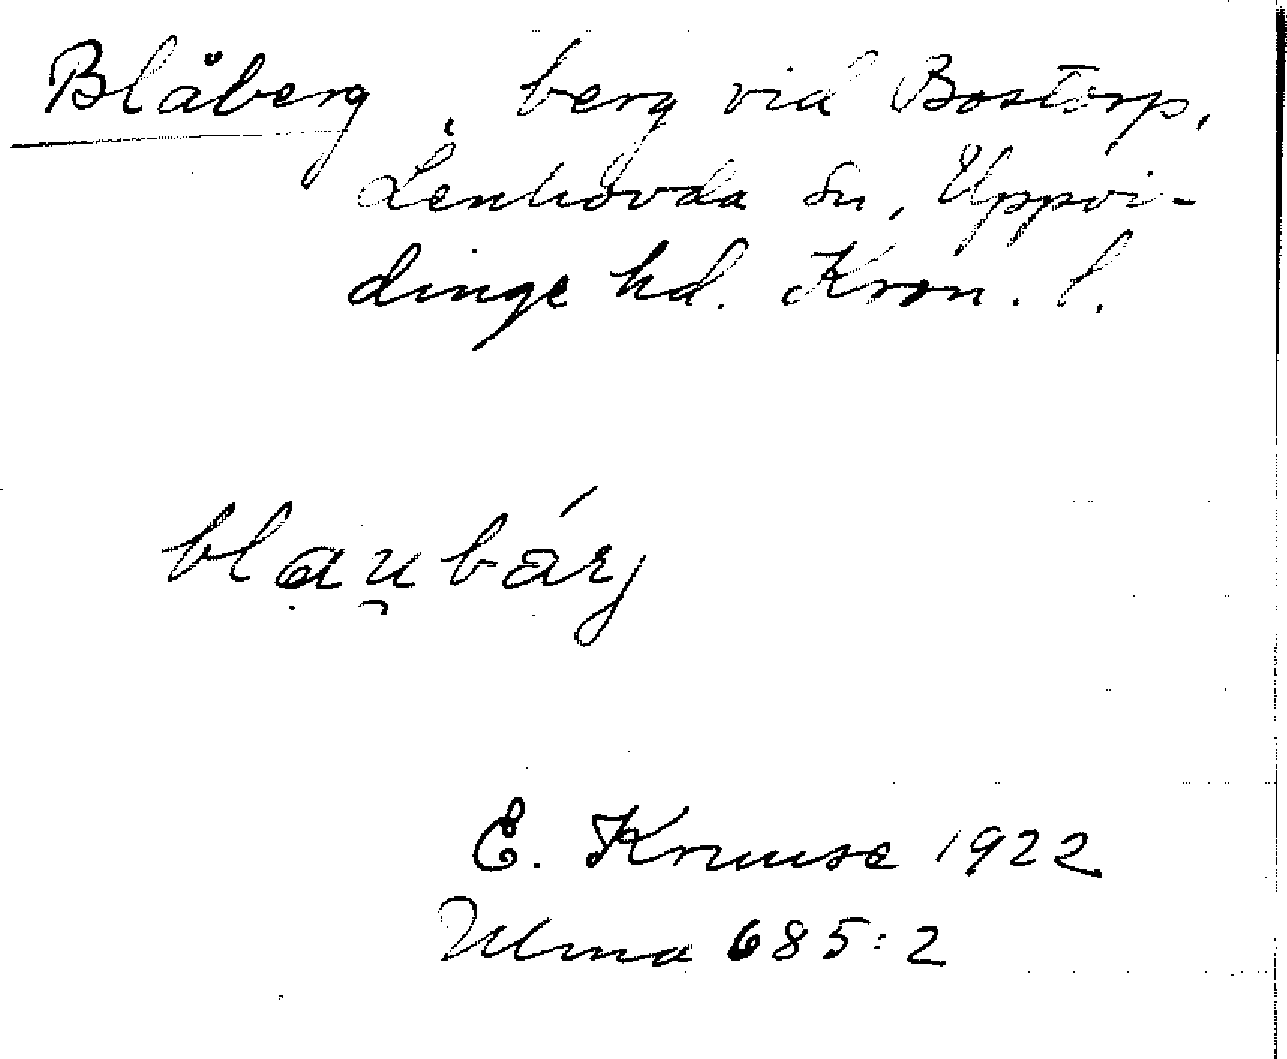 Blåberg, berg vid Bostorp,
Lenhovda sn, Uppvi-
dinge hd. Kron. l.
bla̤u̯bárj
E. Kruuse 1922
Ulma 685:2